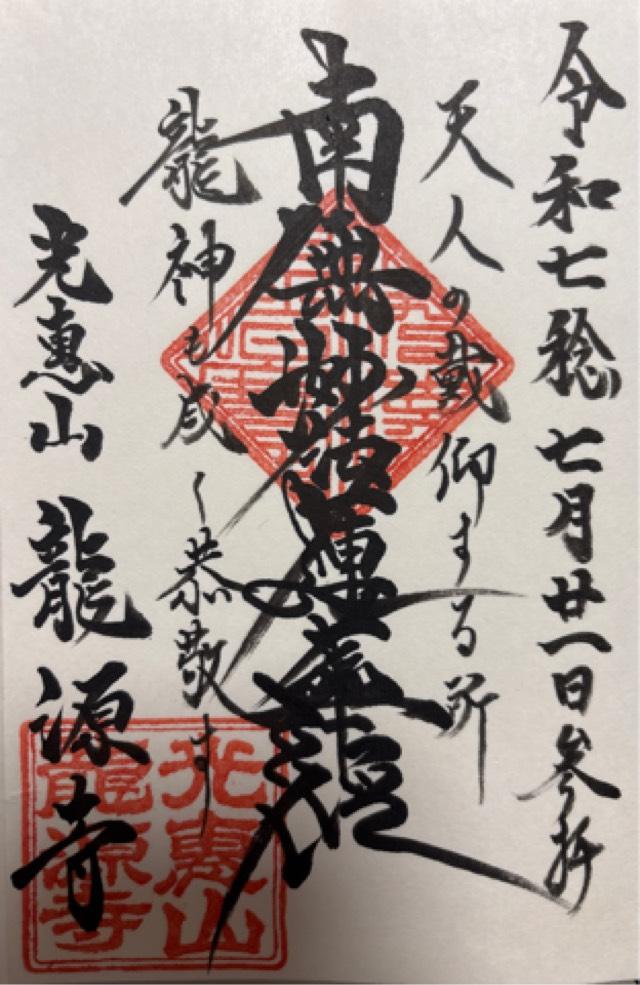 令和七稔七月廿一日参拝
天人の戴仰する所
南無妙法蓮華経
龍神も咸く恭敬す
光惠山 龍源寺
光惠山
龍源寺